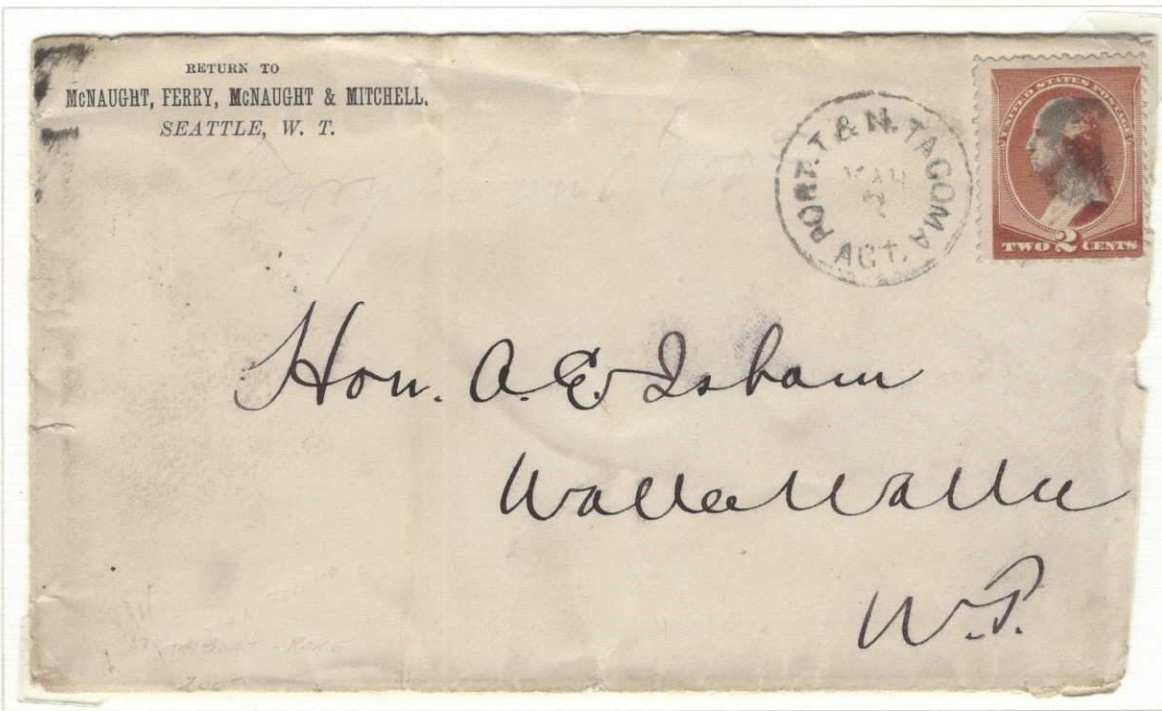 RETURN TO
McNAUGHT, FERRY, McNAUGHT & MITCHELL,
SEATTLE, W. T.
PORT. T & N. TACOMA
MAR
AGT.
UNITED STATES POSTAGE
TWO 2 CENTS
Hon. A. E. Isham
Walla Walla
W. T.